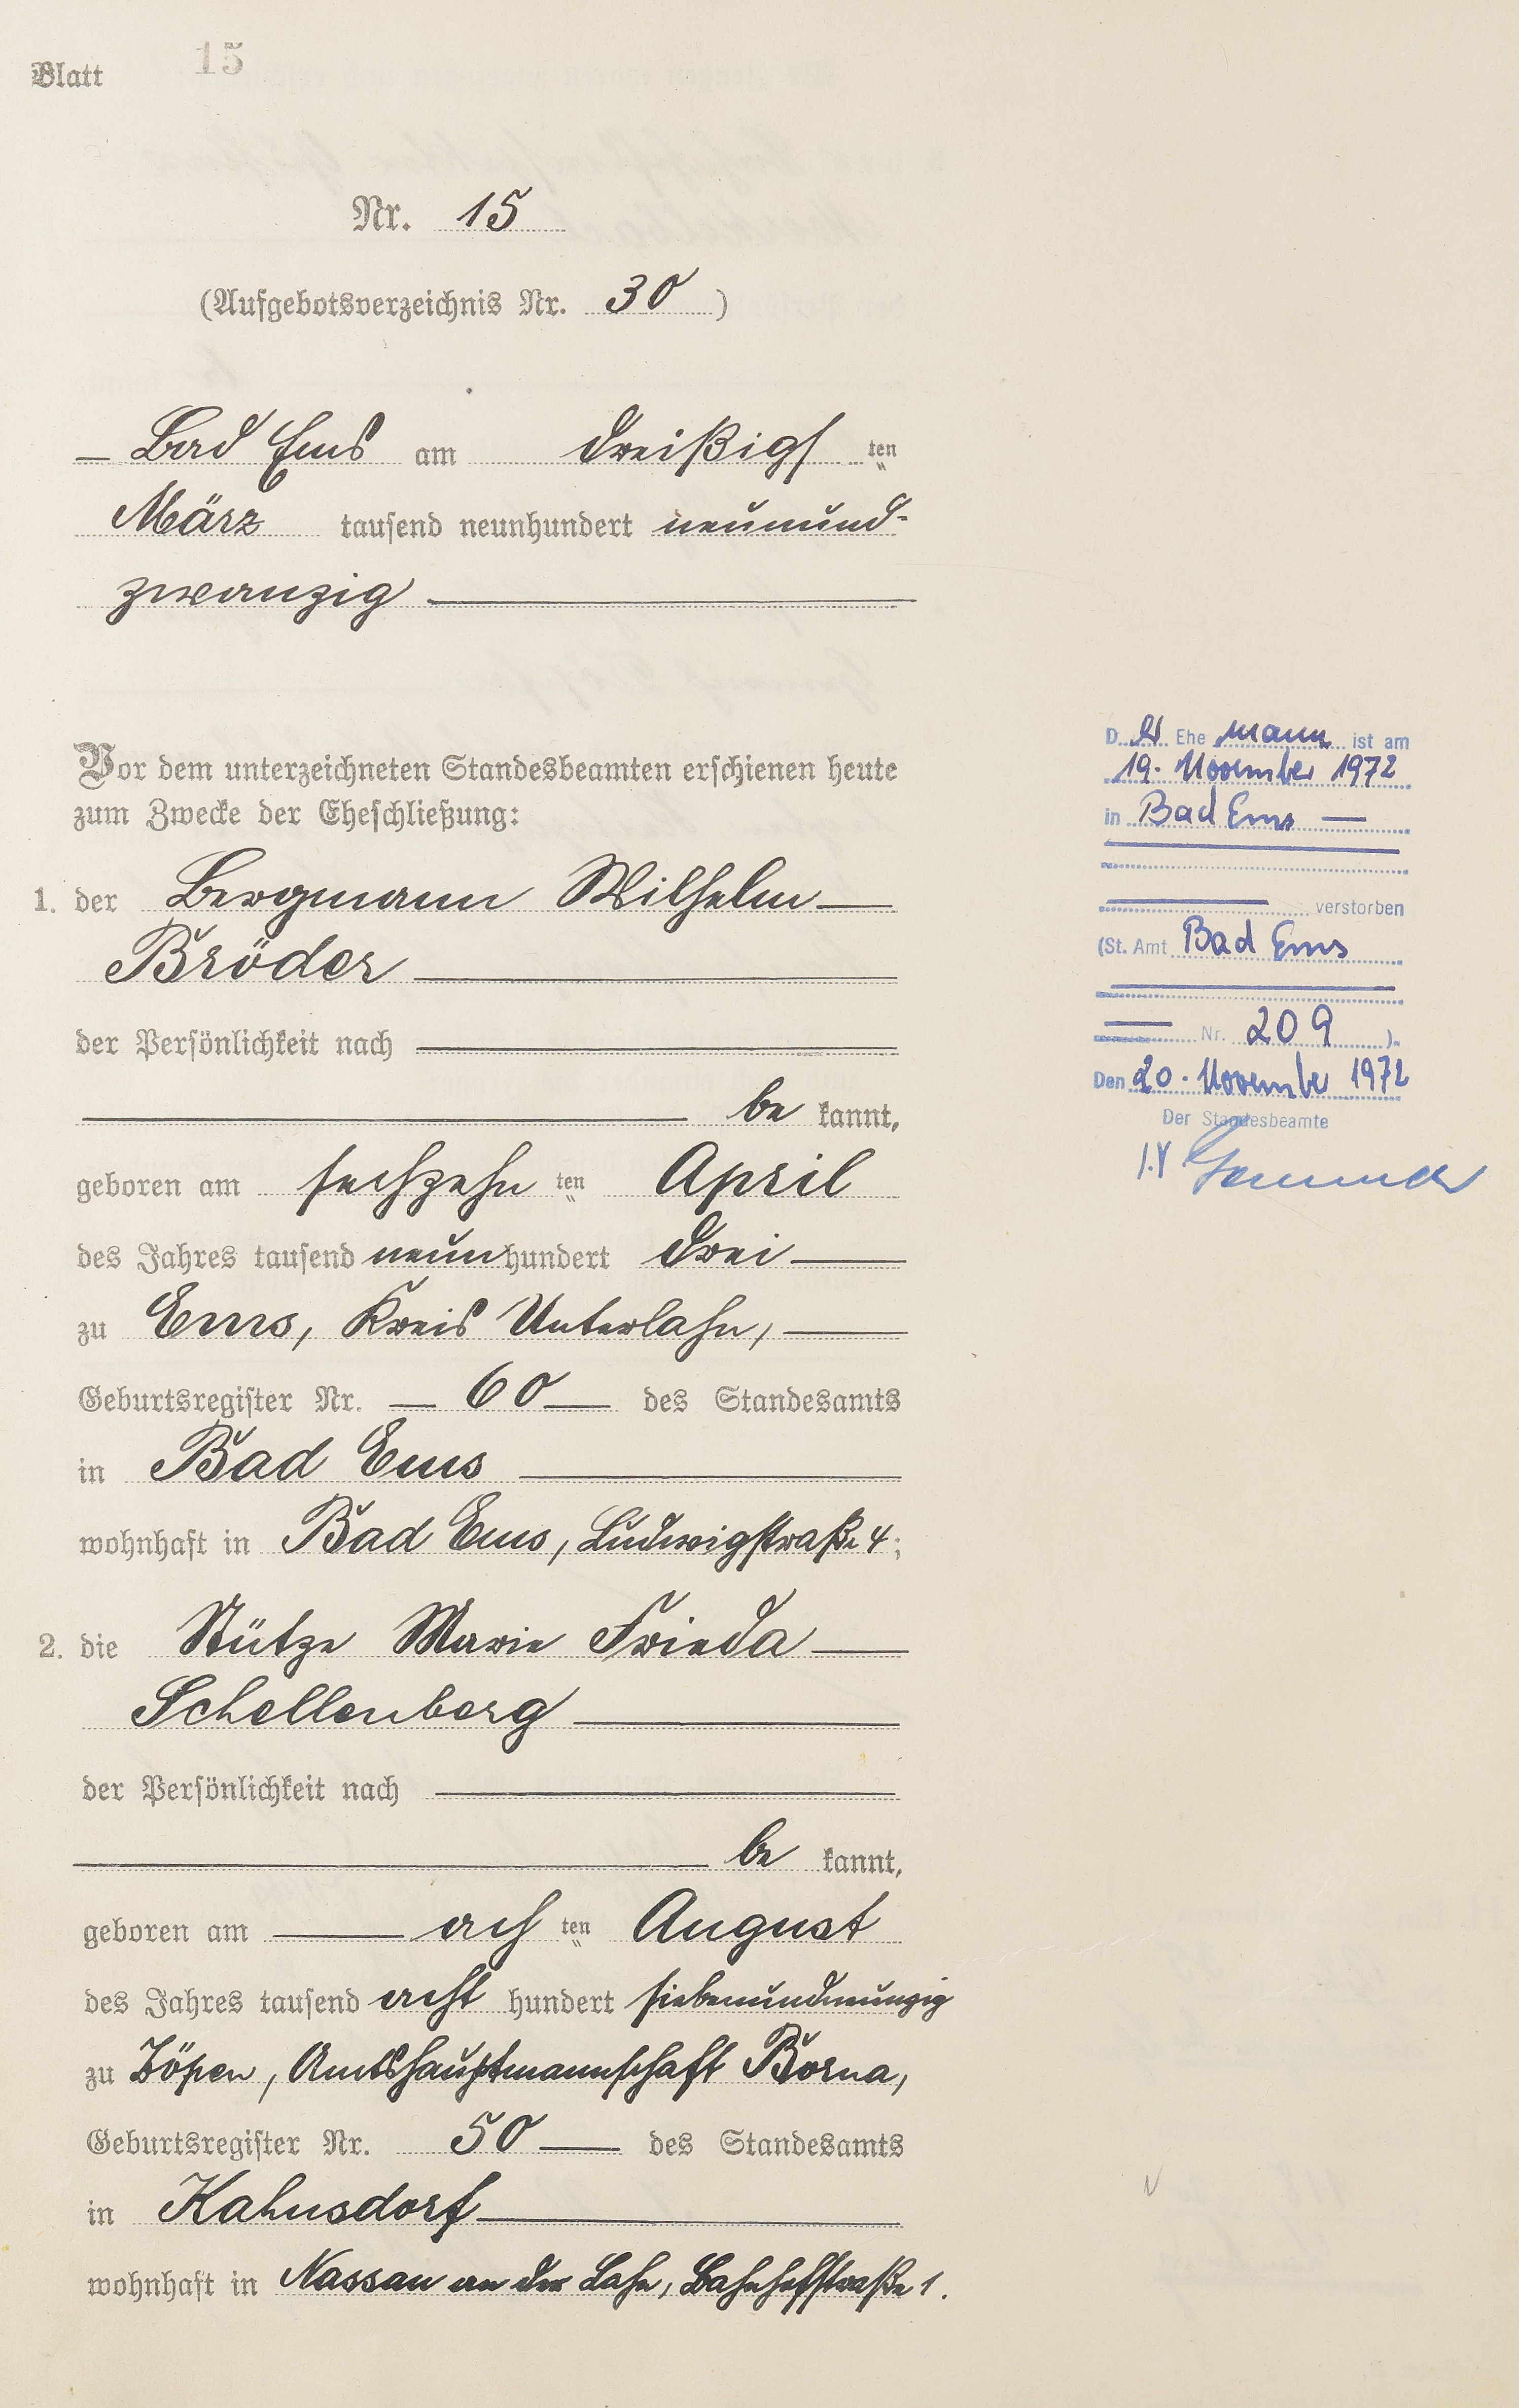 Blatt 15
Nr. 15
(Aufgebotsverzeichnis Nr. 30)
Bad Ems am dreißigsten
März tausend neunhundert neunund-
zwanzig
Vor dem unterzeichneten Standesbeamten erschienen heute
zum Zwecke der Eheschließung:
1. der Bergmann Wilhelm
Bröder
der Persönlichkeit nach
be kannt,
geboren am sechzehn ten April
des Jahres tausend neun hundert drei
zu Ems, Kreis Unterlahn,
Geburtsregister Nr. 60 des Standesamts
in Bad Ems
wohnhaft in Bad Ems, Ludwigstraße 4;
2. die Stütze Marie Frieda
Schellenberg
der Persönlichkeit nach
be kannt,
geboren am ach ten August
des Jahres tausend acht hundert siebenundneunzig
zu Zöpen, Amtshauptmannschaft Borna,
Geburtsregister Nr. 50 des Standesamts
in Kahnsdorf
wohnhaft in Nassau an der Lahn, Bahnhofstraße 1.
D er Ehe mann ist am
19. November 1972
in Bad Ems
verstorben
(St. Amt Bad Ems
Nr. 209 ).
Den 20. November 1972
Der Standesbeamte
I.V.